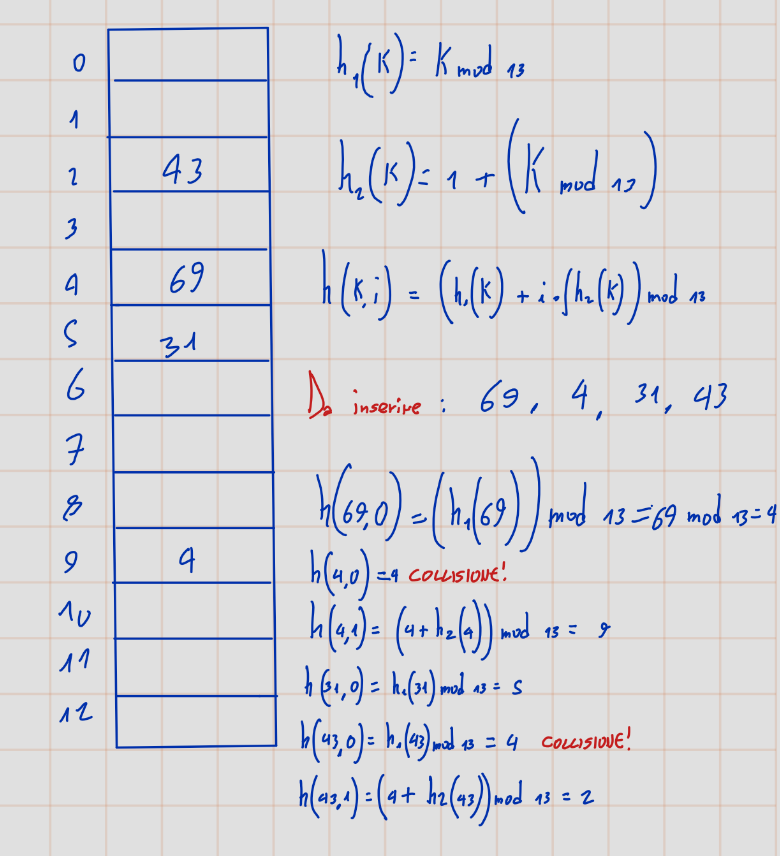 0
1
2 43
3
4 69
5 31
6
7
8
9 4
10
11
12
h₁(K) = K mod 13
h₂(K) = 1 + (K mod 13)
h(K,i) = (h₁(K) + i·(h₂(K)) mod 13
Da inserire : 69, 4, 31, 43
h(69,0) = (h₁(69)) mod 13 = 69 mod 13 = 4
h(4,0) = 4 COLLISIONE!
h(4,1) = (4 + h₂(4)) mod 13 = 9
h(31,0) = h₁(31) mod 13 = 5
h(43,0) = h₁(43) mod 13 = 4 COLLISIONE!
h(43,1) = (4 + h2(43)) mod 13 = 2